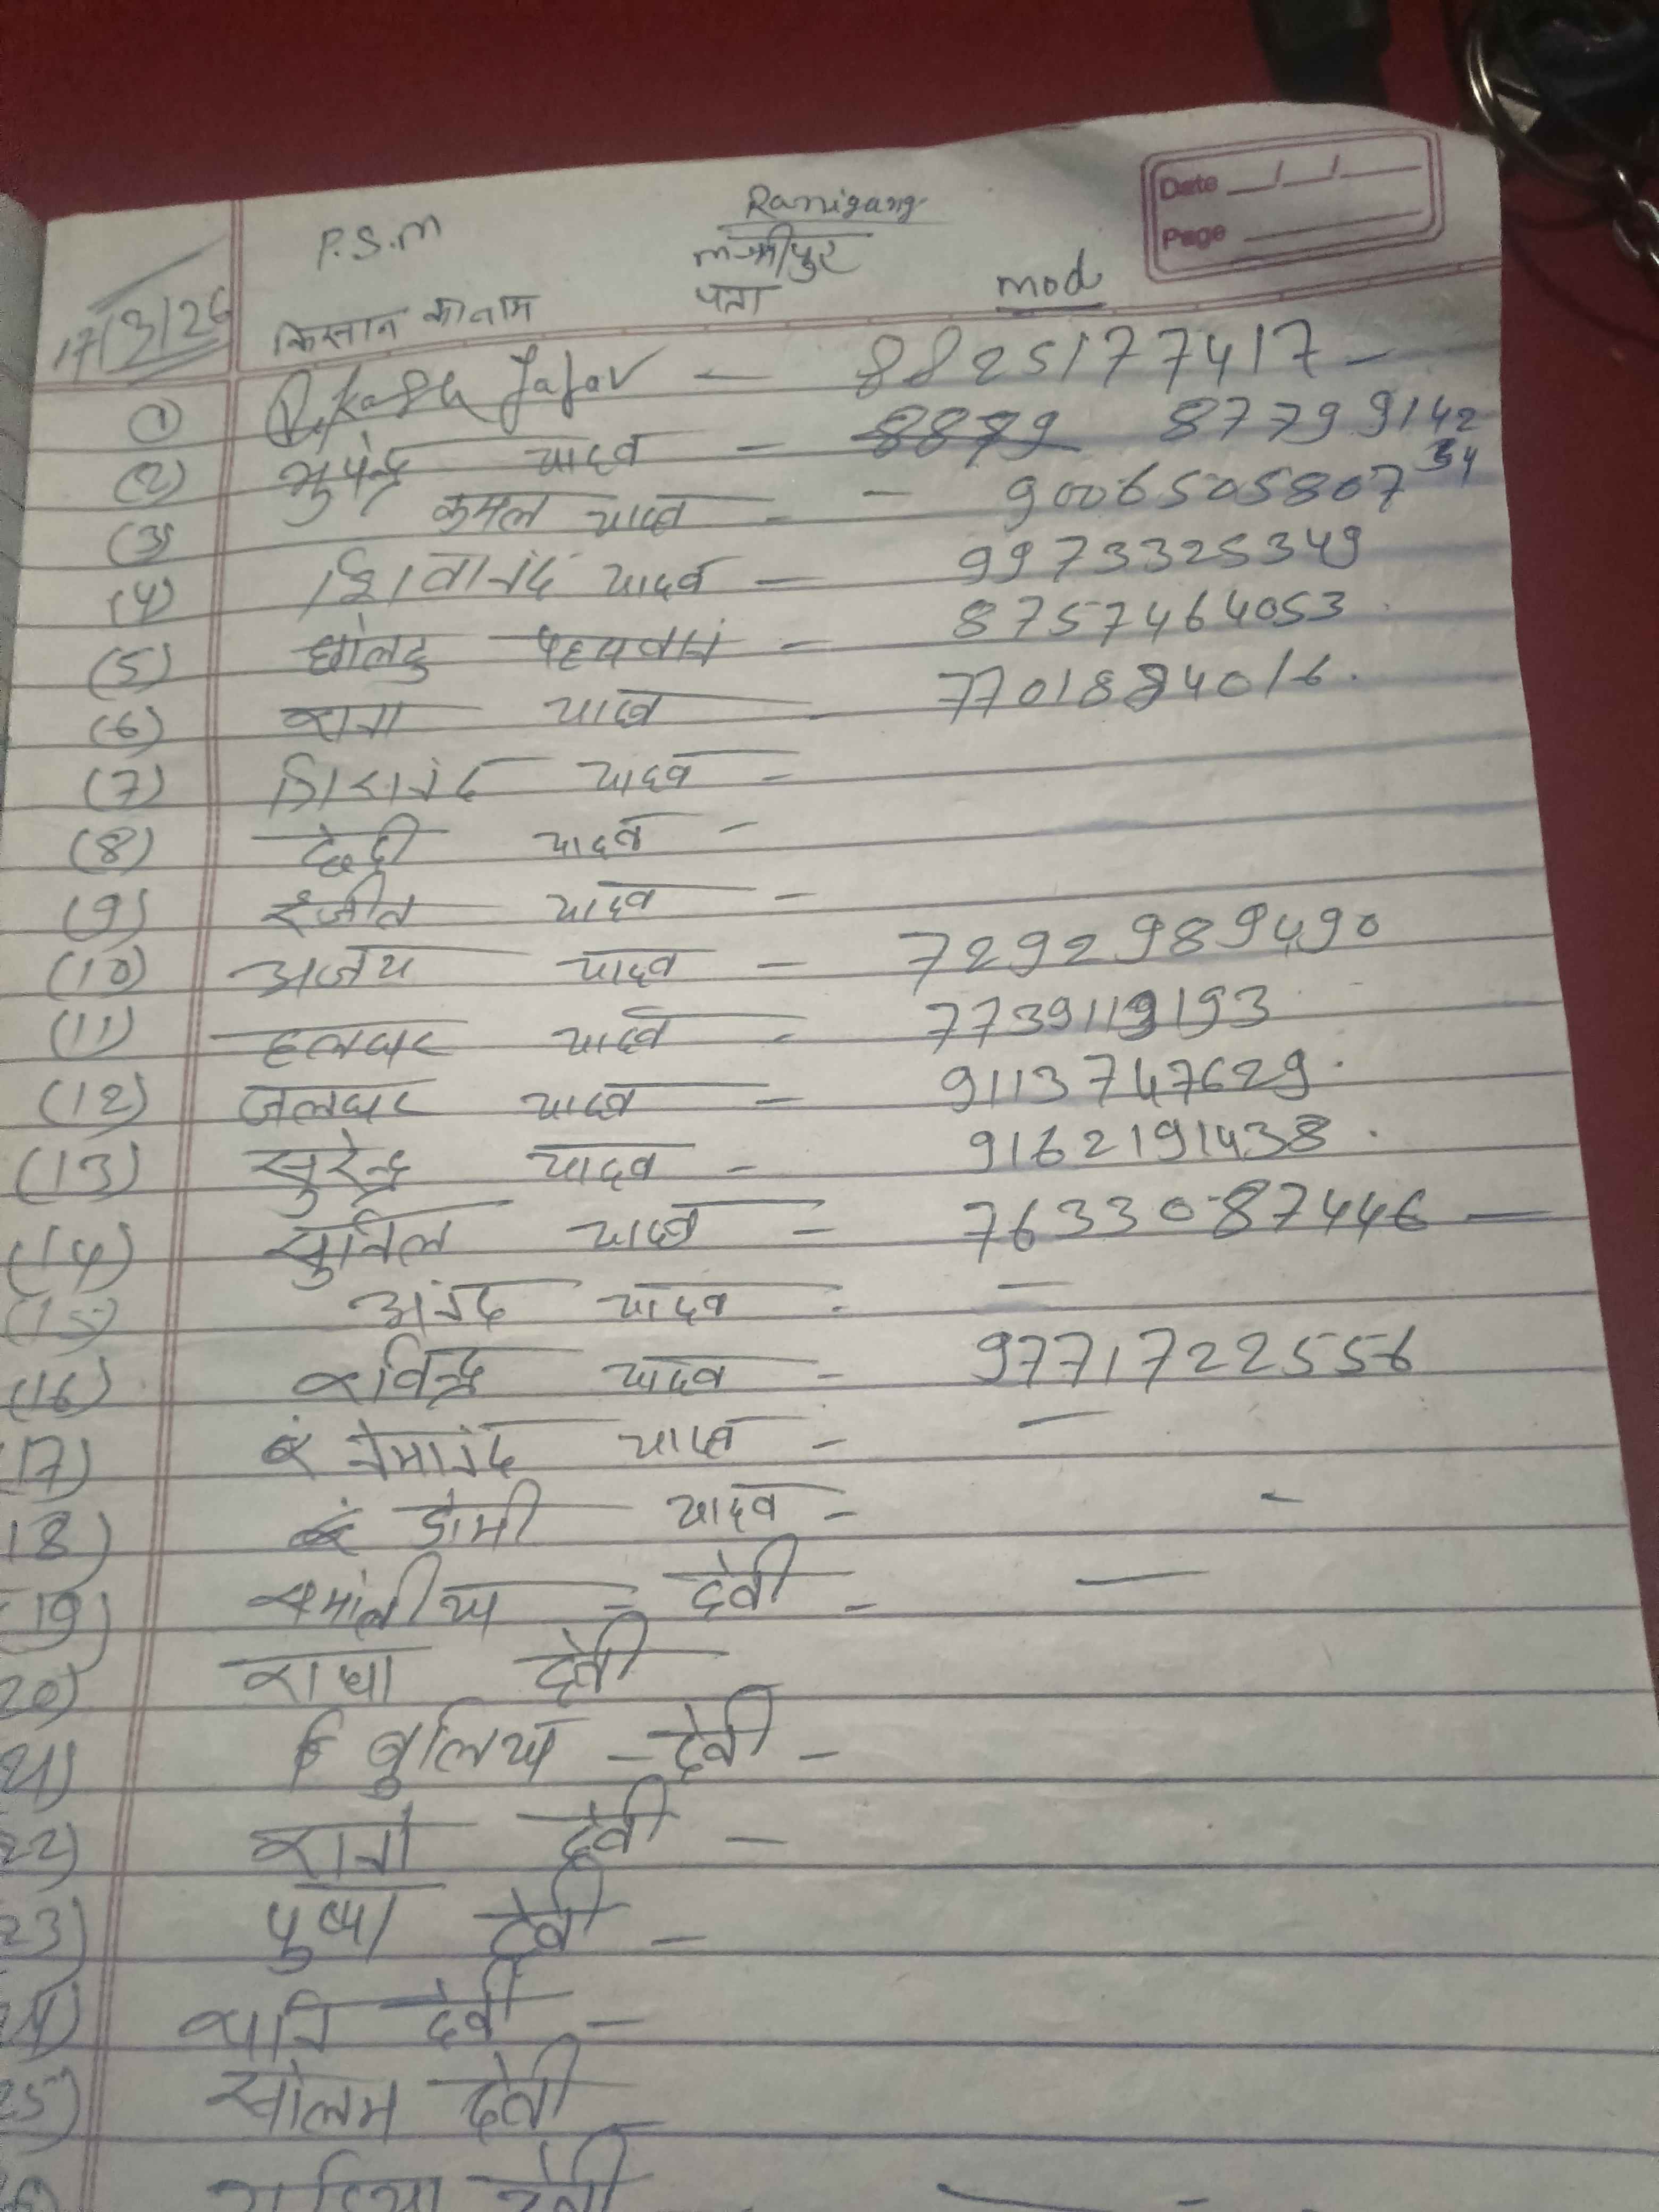 Date __/__/____
Page ____
P.S.M
Ranigang
मझीपुर
17/3/26 किसान का नाम पता mod
(1) — 8825177417 —
(2) भुपेन्द्र यादव — 8879 87799142
34
(3) कमल यादव - - 9006505807
(4) शिवानंद यादव — 9973325349
(5) घोलटु - 8757464053
(6) राना यादव - 7701884016.
(7) यादव -
(8) यादव -
(9) रंजीत यादव -
(10) अजय यादव - 7292989490
(11) हलधर यादव - 7739119193
(12) जलधर यादव - 9113747629.
(13) सुरेन्द्र यादव - 9162191438.
(14) सुनिल यादव - 7633087446 —
(15) अंनद यादव - —
(16) रविन्द्र यादव - 9771722556
(17) यादव - —
18) डोमी यादव - -
19) देवी - —
20) राधा देवी
21) बुलिया - देवी -
22) रानी देवी —
23) पुष्पा देवी —
24) देवी —
25) सोलम देवी
देवी